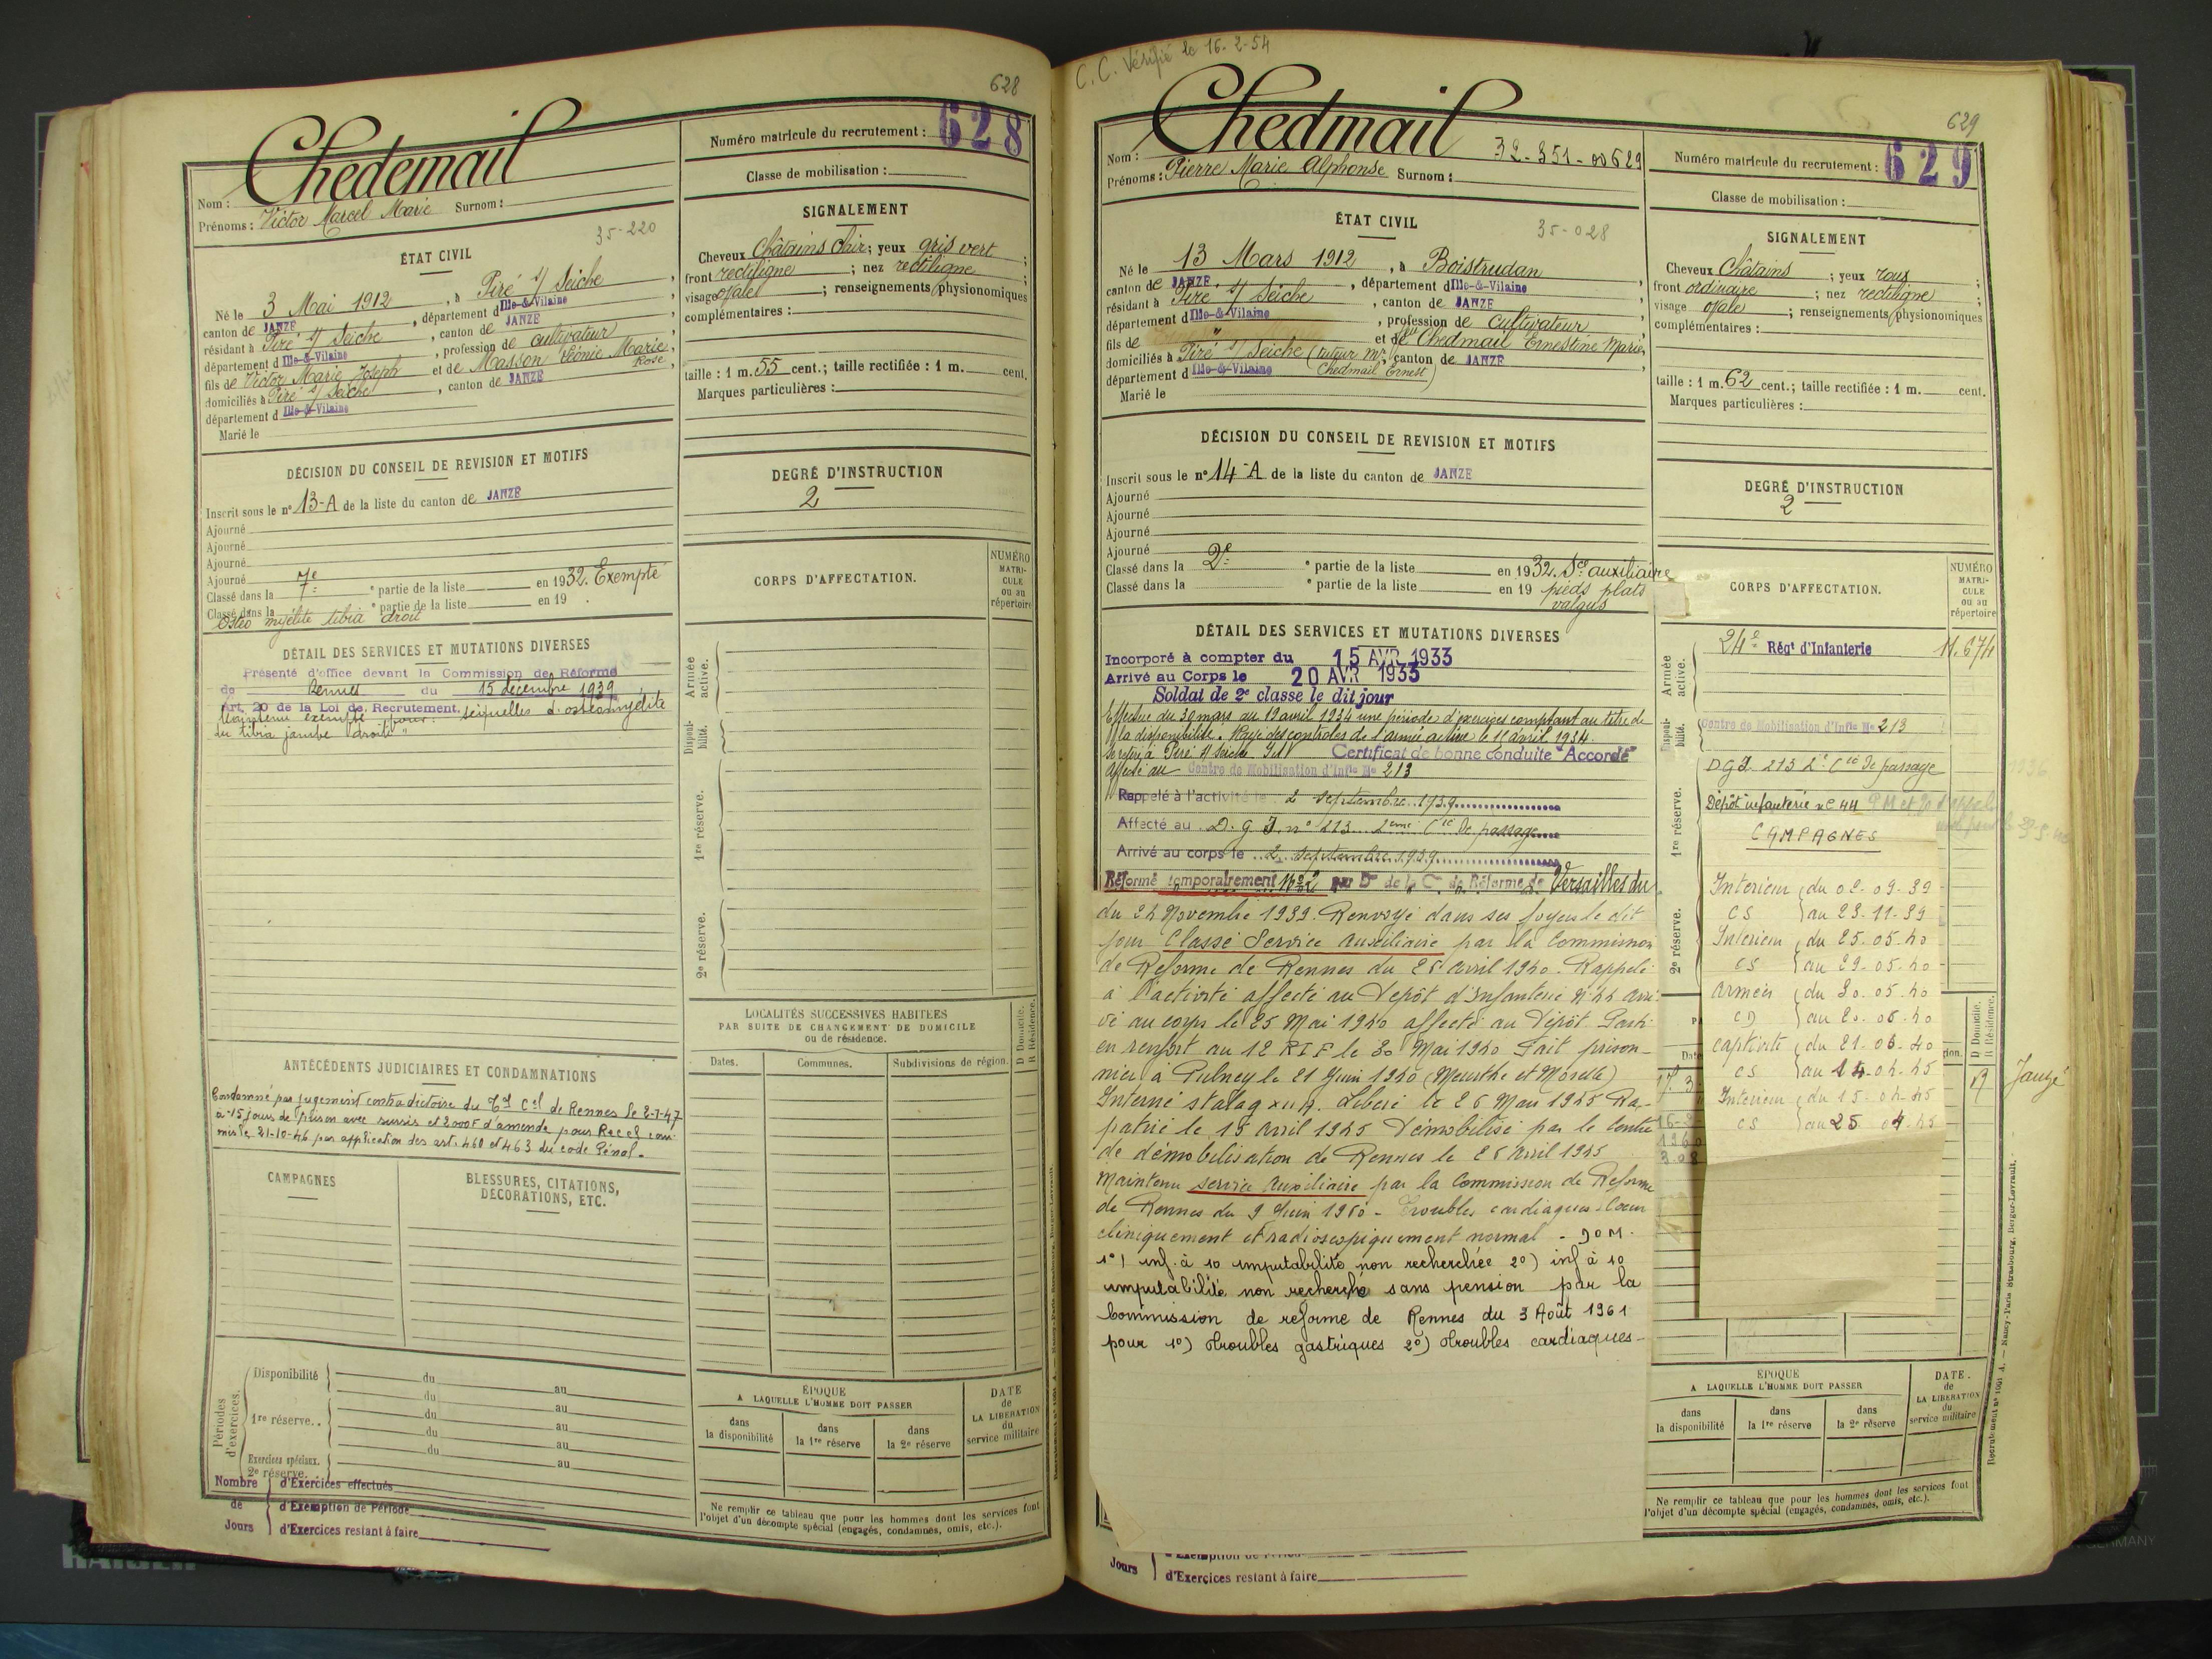 628
Chedemail
Nom :
Prénoms : Victor Marcel Marie Surnom :
Numéro matricule du recrutement : 628
Classe de mobilisation :
ÉTAT CIVIL
35-220
Né le 3 Mai 1912, à Piré s/ Seiche,
canton de JANZE, département d Ille-&-Vilaine,
résidant à Piré s/ Seiche, canton de JANZE,
département d Ille-&-Vilaine, profession de cultivateur,
fils de Victor Marie Joseph et de Masson Léonie Marie Rose,
domiciliés à Piré s/ Seiche, canton de JANZE
département d Ille-&-Vilaine
Marié le
SIGNALEMENT
Cheveux Châtains clair ; yeux gris vert ;
front rectiligne ; nez rectiligne ;
visage ovale ; renseignements physionomiques
complémentaires :
taille : 1 m. 55 cent.; taille rectifiée : 1 m. cent.
Marques particulières :
DÉCISION DU CONSEIL DE REVISION ET MOTIFS
Inscrit sous le n° 13-A de la liste du canton de JANZE
Ajourné
Ajourné
Ajourné
Ajourné
Classé dans la 7e ° partie de la liste en 1932. Exempté
Classé dans la ° partie de la liste en 19 .
Ostéo myélite tibia droit
DEGRÉ D'INSTRUCTION
2
CORPS D'AFFECTATION.
NUMÉRO MATRI-CULE ou au répertoire
DÉTAIL DES SERVICES ET MUTATIONS DIVERSES
Présenté d'office devant la Commission de Réforme
de Rennes du 15 décembre 1939
Art. 20 de la Loi de Recrutement.
Maintenu exempté pour : séquelles d'ostéomyélite
du tibia jambe droite"
Armée active.
Disponi-bilité.
1re réserve.
2e réserve.
LOCALITÉS SUCCESSIVES HABITÉES
PAR SUITE DE CHANGEMENT DE DOMICILE
ou de résidence.
Dates. Communes. Subdivisions de région. D Domicile. R Résidence.
ANTÉCÉDENTS JUDICIAIRES ET CONDAMNATIONS
Condamné par jugement contradictoire du Tal Cel de Rennes le 2-7-47
à 15 jours de prison avec sursis et 2000F d'amende pour Recel com-
mis le 21-10-46 par application des art. 460 et 463 du code Pénal.
CAMPAGNES
BLESSURES, CITATIONS,
DÉCORATIONS, ETC.
Périodes d'exercices.
Disponibilité du au
du au
1re réserve.. du au
du au
Exercices spéciaux. du au
2e réserve. au
Nombre de Jours
d'Exercices effectués
d'Exemption de Période
d'Exercices restant à faire
ÉPOQUE
A LAQUELLE L'HOMME DOIT PASSER
dans la disponibilité
dans la 1re réserve
dans la 2e réserve
DATE de LA LIBÉRATION du service militaire
Ne remplir ce tableau que pour les hommes dont les services font
l'objet d'un décompte spécial (engagés, condamnés, omis, etc.).
C.C. Vérifié le 16-2-54
629
Chedmail 32-351-00629
Nom :
Prénoms : Pierre Marie Alphonse Surnom :
Numéro matricule du recrutement : 629
Classe de mobilisation :
ÉTAT CIVIL
35-028
Né le 13 Mars 1912, à Boistrudan
canton de JANZE, département d Ille-&-Vilaine,
résidant à Piré s/ Seiche, canton de JANZE
département d Ille-&-Vilaine, profession de cultivateur,
fils de et de Chedmail Ernestine Marie,
domiciliés à Piré s/ Seiche (tuteur Mr Chedmail Ernest), canton de JANZE
département d Ille-&-Vilaine
Marié le
SIGNALEMENT
Cheveux Châtains ; yeux roux ;
front ordinaire ; nez rectiligne ;
visage ovale ; renseignements physionomiques
complémentaires :
taille : 1 m. 62 cent.; taille rectifiée : 1 m. cent.
Marques particulières :
DÉCISION DU CONSEIL DE REVISION ET MOTIFS
Inscrit sous le n° 14-A de la liste du canton de JANZE
Ajourné
Ajourné
Ajourné
Ajourné
Classé dans la 2e ° partie de la liste en 1932. Sce auxiliaire
Classé dans la ° partie de la liste en 19 pieds plats
valgus
DEGRÉ D'INSTRUCTION
2
CORPS D'AFFECTATION.
NUMÉRO MATRI-CULE ou au répertoire
DÉTAIL DES SERVICES ET MUTATIONS DIVERSES
Incorporé à compter du 15 AVR 1933
Arrivé au Corps le 20 AVR 1933
Soldat de 2e classe le dit jour
Effectue du 30 mars au 19 avril 1934 une période d'exercices comptant au titre de
la disponibilité. Rayé des contrôles de l'armée active le 11 avril 1934.
Se retire à Piré s/ Seiche I&V Certificat de bonne conduite "Accordé"
Affecté au Centre de Mobilisation d'Infie No 213
Rappelé à l'activité le 2 septembre 1939
Affecté au D.G.I. n° 213 2eme Cie de passage
Arrivé au corps le 2 septembre 1939
Réformé temporairement No 2 par Don de la Con de Réforme de Versailles du
du 24 Novembre 1939. Renvoyé dans ses foyers le dit
jour Classé Service auxiliaire par la Commission
de Réforme de Rennes du 25 avril 1940. Rappelé
à l'activité affecté au Dépôt d'Infanterie N°44 arri-
vé au corps le 25 Mai 1940 affecté au Dépôt Parti
en renfort au 12 RIF le 30 Mai 1940 Fait prison-
nier à Pulney le 21 Juin 1940 (Meurthe et Moselle)
Interné stalag XII A. Libéré le 26 Mars 1945 Ra-
patrié le 15 avril 1945 Démobilisé par le Centre
de démobilisation de Rennes le 25 avril 1945
Maintenu service Auxiliaire par la Commission de Réforme
de Rennes du 9 Juin 1960 - Troubles cardiaques. Coeur
cliniquement et radioscopiquement normal - DOM.
1°) inf. à 10 imputabilité non recherchée 2°) inf à 10
imputabilité non recherché sans pension par la
Commission de réforme de Rennes du 3 Août 1961
pour 1°) troubles gastriques 2°) troubles cardiaques-
Armée active.
24e Régt d'Infanterie 11.674
Disponi-bilité.
Centre de Mobilisation d'Infie No 213
1re réserve.
DGI 213 2e Cie de passage
Dépôt infanterie n° 44
2e réserve.
CAMPAGNES
Intérieur du 02-09-39
CS au 23-11-39
Intérieur du 25-05-40
CS au 29-05-40
Armées du 30-05-40
CD au 20-06-40
Captivité du 21-06-40
CS au 14-04-45
Intérieur du 15-04-45
CS au 25 04-45
D Domicile. R Résidence.
Janzé
ÉPOQUE
A LAQUELLE L'HOMME DOIT PASSER
dans la disponibilité
dans la 1re réserve
dans la 2e réserve
DATE de LA LIBÉRATION du service militaire
Ne remplir ce tableau que pour les hommes dont les services font
l'objet d'un décompte spécial (engagés, condamnés, omis, etc.).
Jours
d'Exercices restant à faire